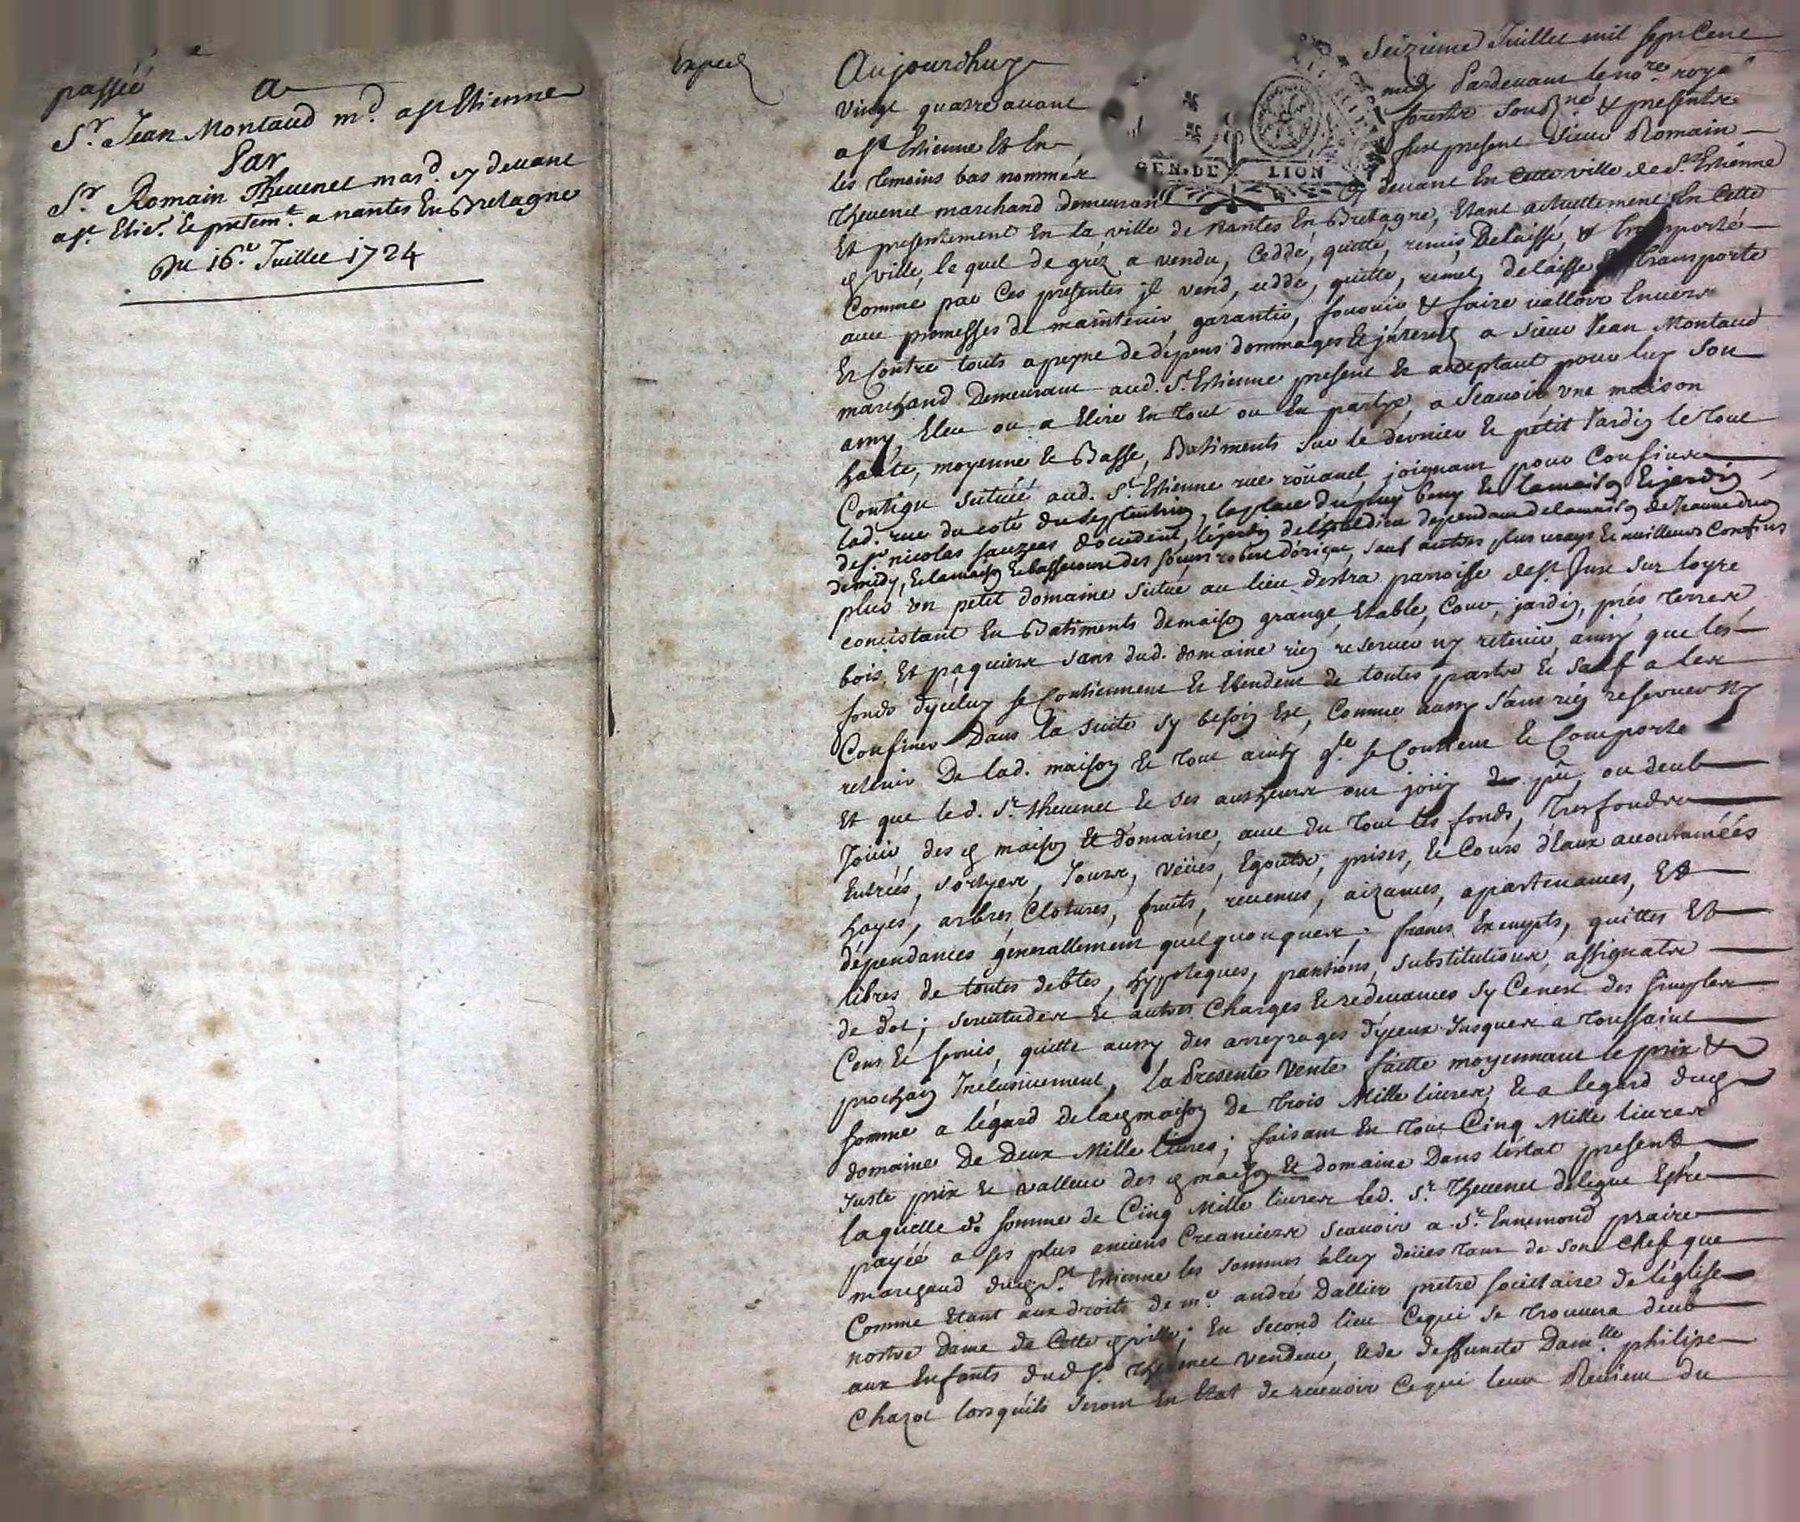 passéé
a
Sr. Jean Montaud md. a st Etienne
Par
Sr. Romain Thevenet mard. cy devant
a st. Etie. & pntemt. a nantes En Bretagne
Du 16e. Juillet 1724
Exped
Aujourdhuy seizieme Juillet mil sept Cent
vingt quatre avant midy Pardevant le nore. royal
a st Estienne Et En forestz sousné & presentz
les temoins bas nommés fust present sieur Romain
GEN. DE LION
Thevenet marchand demeurant cy devant En cette ville de St. Estienne
Et presentement En la ville de nantes En Bretagne, Etant actuellement En cette
ville, le quel de gréz a vendu, Ceddé, quitté, remis, Delaissé, & transporté
Comme par Ces presentes jl vend, cedde, quitte, remet, delaisse & transporte
avec promesses de maintenir, garantir, fournir & faire valloir Envers
Et Contre touts a peyne de dépens dommages & jnterest a sieur Jean Montaud
marchand Demeurant aud. St. Estienne present & acceptant pour luy son
amy Eleu ou a Elire En tout ou En partye, a scavoir une maison
haute, moyenne & Basse, Batiments sur le dernier & petit Jardin le tout
Contigu scituéé aud. St. Estienne rue roüanel, joignant pour Confins
lad. rue du coté du septentrion, la place du la maison & jardin
de sr. nicolas sauzeas d'occident, le jardin de dependant de la maison de Jeanne
de midy, & la maison & basse cour des d'orient, sauf autres plus vrays & meilleurs Confins
plus un petit domaine scitué au lieu destra parroisse de st. Just sur loyre
concistant En Batiments de maison grange, Etable, Cour, jardin, prés, terres
bois, Et paquiers sans dud. domaine rien reserver ny retenir, ainsy que les
fonds d'yceluy se Contiennent & Etendent de toutes parts & sauf a les
Confiner Dans la suitte sy besoin Est, Comme aussy sans rien reserver ny
retenir De lad. maison & tout ainsy q'le se Contient & Comporte
Et que led. Sr. thevenet & ses autheurs ont joüy de pu, ou deub
Joüir, des maison & domaine, avec du tout les fonds, Tresfonds
Entréés, sortyes, Jours, Veües, Egouts, prises, & Cours d'Eaux accoutuméés
hayes, arbres, Clotures, fruits, revenus, aizances, apartenances, Et
dépendances generallement quelquonques; francs Exempts, quittes Et
libres de toutes debtes, hypoteques, pansions, substitutions, assignats
de dot; servitudes & autres Charges & redevances sy Ce n'est des simples
Cens & servis, quitte aussy des arreyrages d'yceux Jusques a toussaint
prochain Inclusivement, La Presente Vente faitte moyennant le prix &
somme a légard de la maison de trois Mille livres, & a legard dud
domaine De Deux Mille livres; faisant En tout Cinq Mille livres
Juste prix & valleur des maison & domaine Dans l'état present,
la quelle d. somme de Cinq Mille livres led. Sr. Thevenet delegue Estre
payéé a ses plus anciens Creanciers scavoir a Sr. Ennemond praire
marchand dud St. Estienne les sommes a luy deües tant de son chef que
Comme Etant aux droits de mre. andré Dallier pretre societaire de l'église
nostre Dame de Cette ville; En second lieu Ce qui se trouvera deub
aux Enfants dud sr. Thevenet vendeur, & de deffuncte Damlle. philipe
Chazot lorsqu'ils seront En Etat de recevoir Ce qui leur Revient du